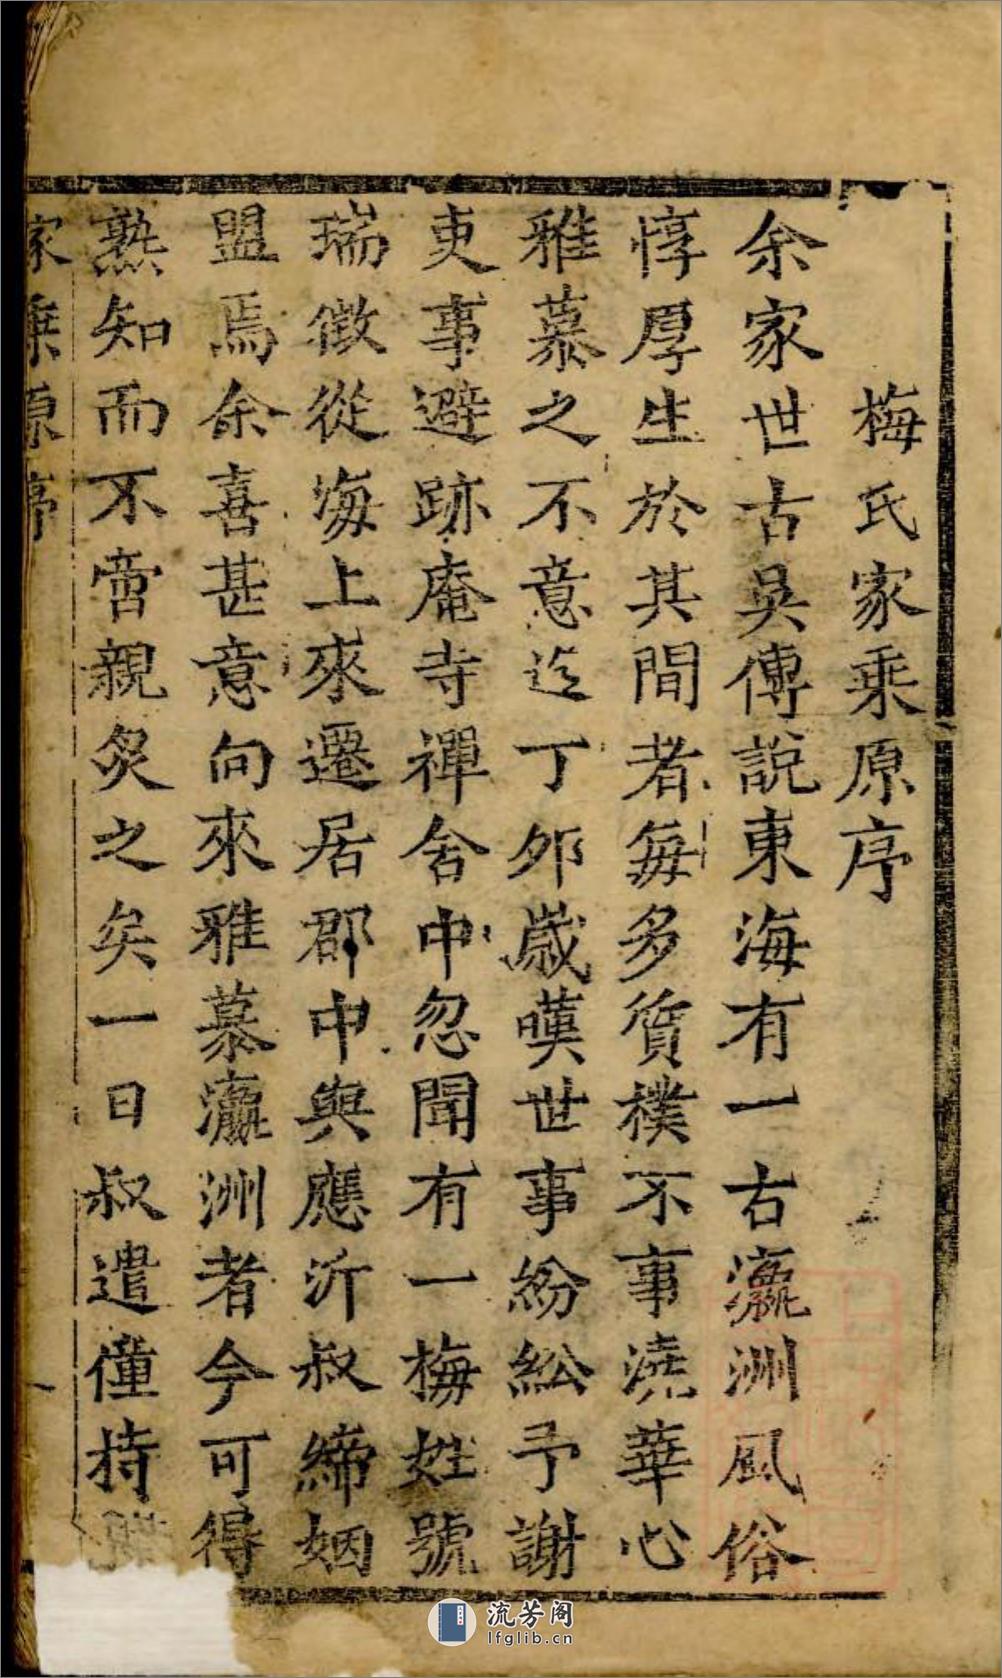 梅氏家乘原序
余家世古吳傳說東海有一古瀛洲風俗
惇厚生於其間者每多質樸不事澆華心
雅慕之不意迄丁夘歲嘆世事紛紜予謝
吏事避跡庵寺禪舍中忽聞有一梅姓號
瑞徵從海上來遷居郡中與應沂叔締姻
盟焉余喜甚意向來雅慕瀛洲者今可得
熟知而不啻親炙之矣一日叔遣僮持
家乘原序
一
流芳阁
lfglib.cn